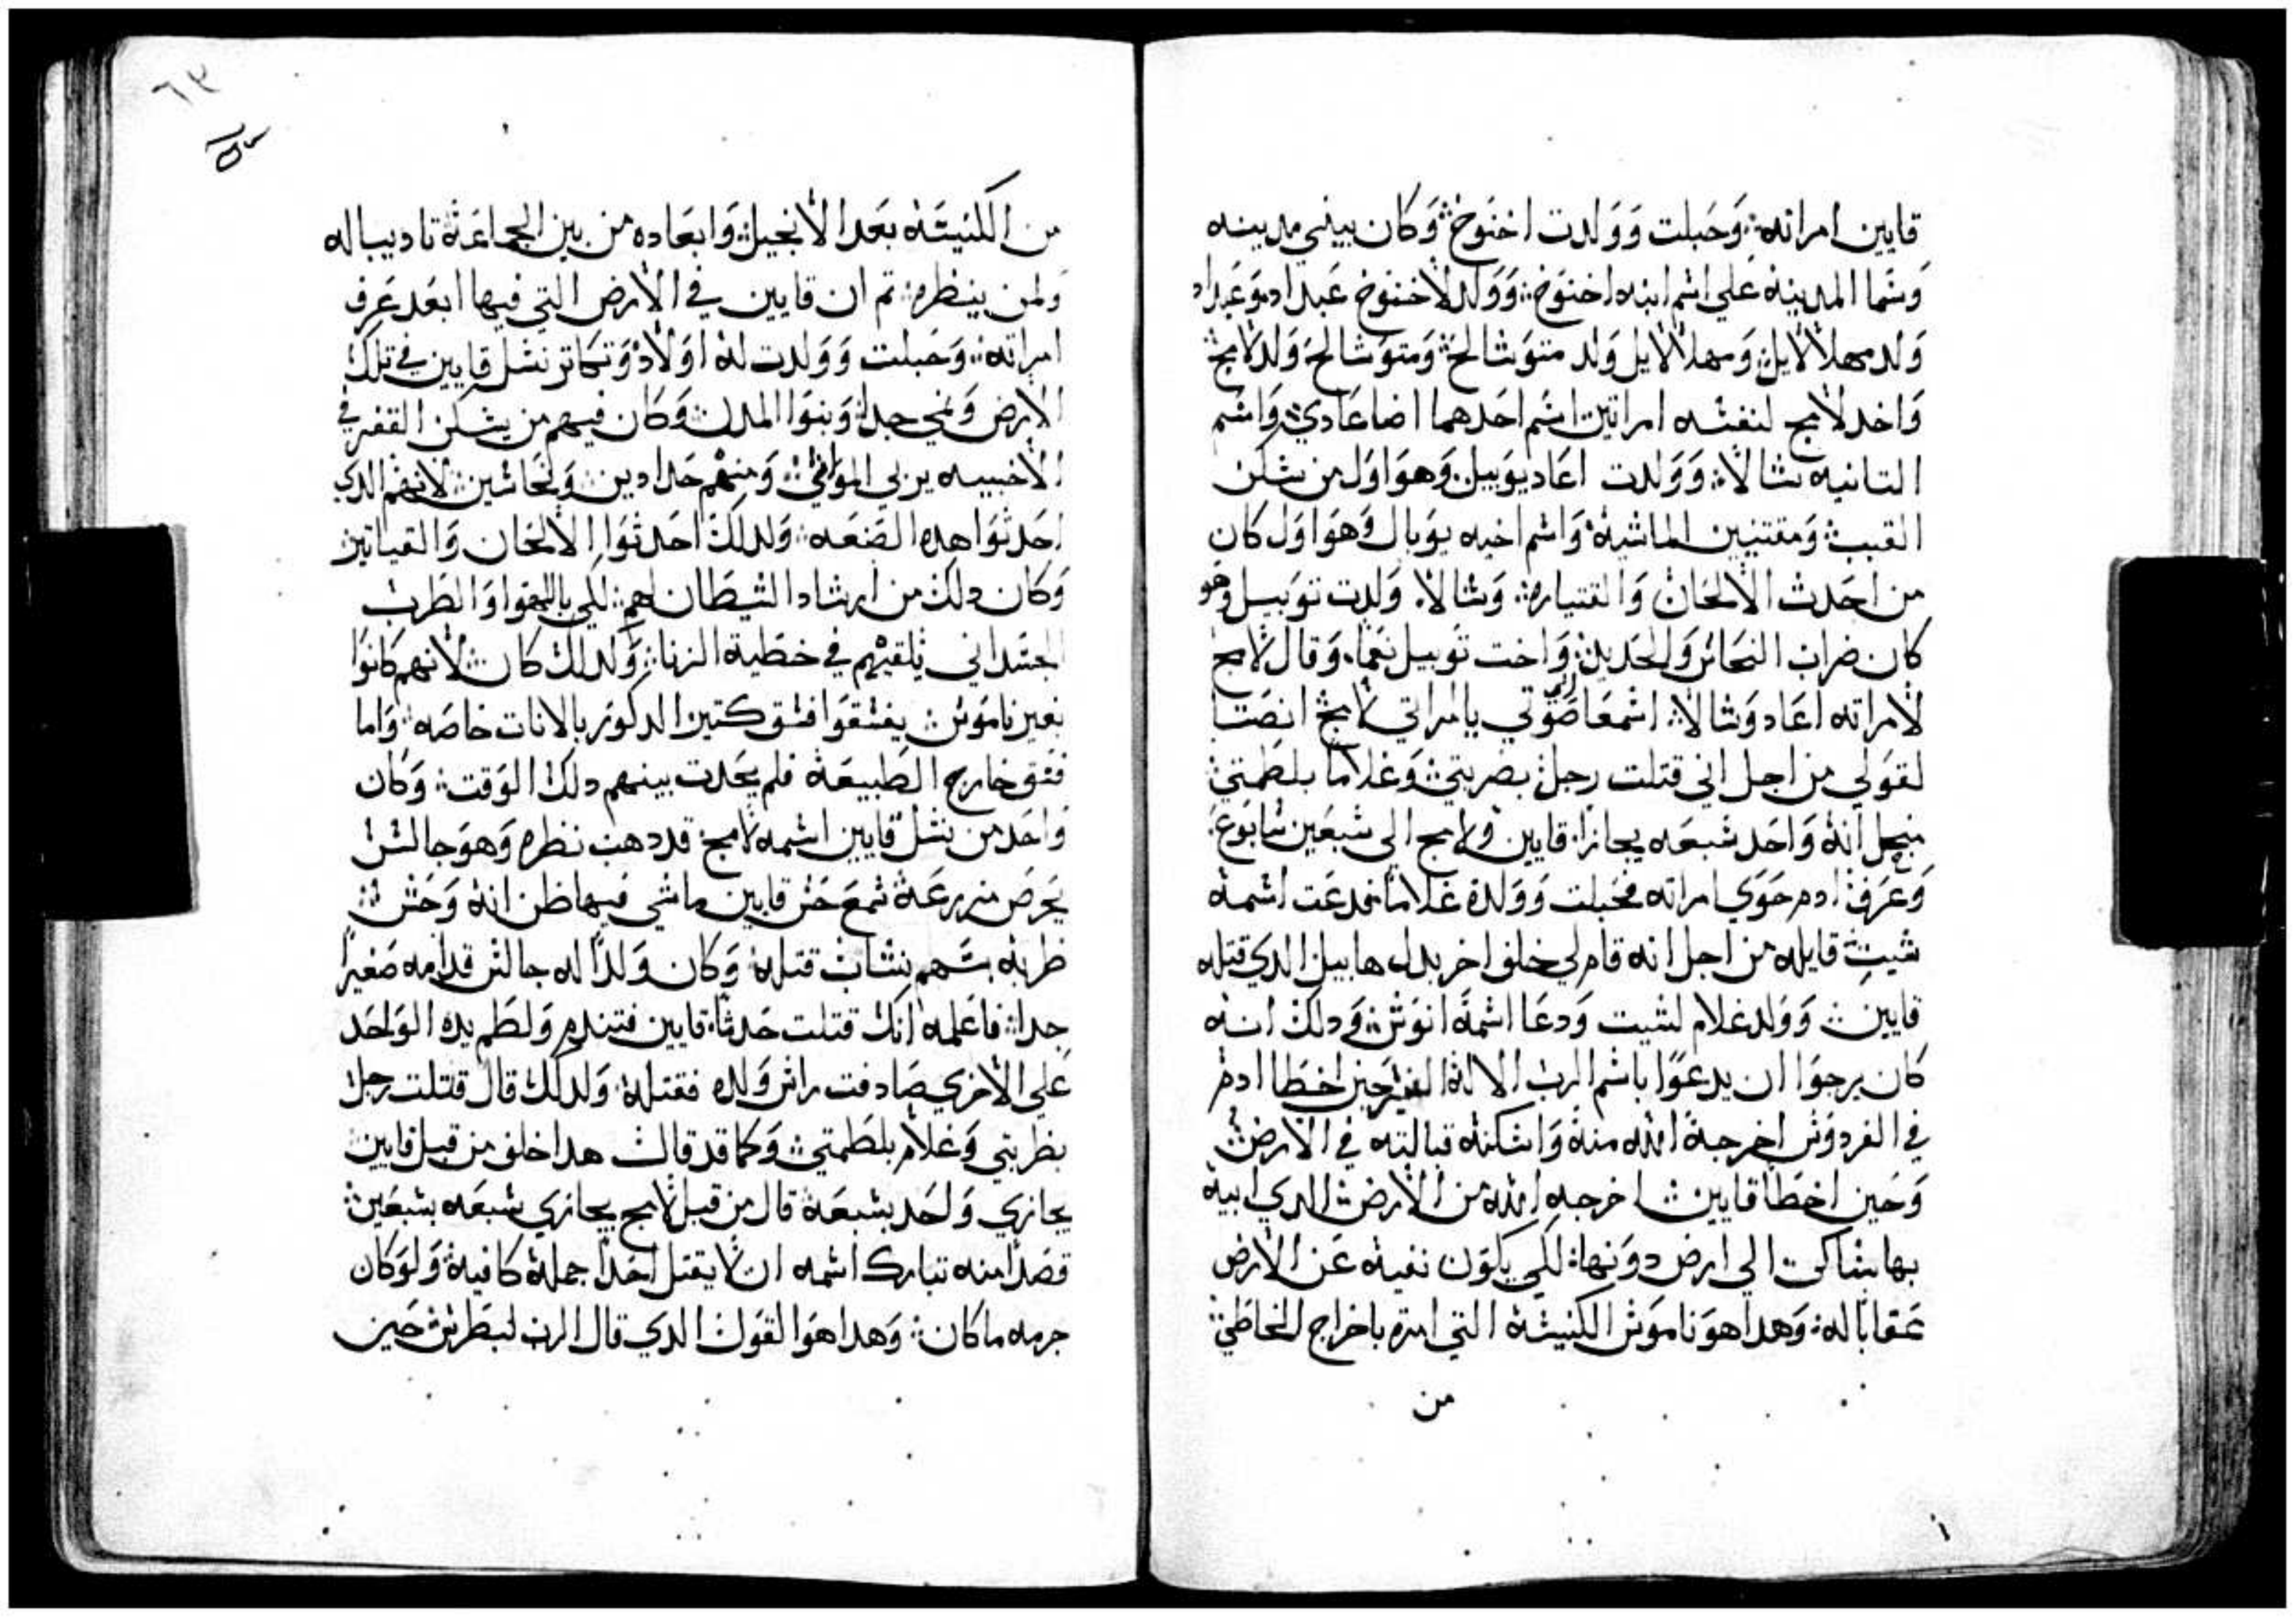 قايين امراته ፨ وَحَبلت وَوَلدت اخنَوخ ፨ وَكان يبني مدينه
وَسَما المدينه عَلي اسَم ابنه اخنوَخ ፨ وَوَلد لاخنوخ عَيداد وَعَيداد
وَلد مهلالايل ፨ وَمهلالايل وَلد متوَشالح ፨ وَمتوَشالح وَلد لامج
وَاخد لامج لنفسَه امراتين اسَم احَدهما اضا عَادي وَاسَم
التانيه شالا ፨ وَوَلدت اعَاد يوَبيل وَهوَ اوَل من سَكن
القبب وَمقتنيين الماشيه وَاسَم اخيه يوَبال وَهوَ اوَل كان
من احَدث الالحَان وَالقتياره ፨ وَشالا وَلدت توَبيل وَهو
كان ضراب النحَائر وَالحَديد ፨ وَاخت توَبيل نعَما ፨ وَقال لامج
لامراته اعَاد وَشالا ፨ اسَمعَا صَوَتي يا امراتي لامج انصَتا
لقوَلي من اجل اني قتلت رجل بضربتي وَغلاما بلطمتي
منجل انه وَاحَد سَبعَه يجازا قايين وَلامج الي سَبعَين سَابوَع
وَعَرف ادم حَوَي امراته فحَبلت وَوَلدة غلاما فدعَت اسَمه
شيت قايله من اجل انه قام لي خلف اخر بدل هابيل الدي قتله
قايين ፨ وَوَلد غلام لشيت وَدعَا اسَمه انوَش ፨ وَدلك انه
كان يرجوَا ان يدعَوَا باسَم الرب الاله حَين اخطا ادم
في الفردوَس اخرجه الله منه وَاسَكنه قبالته في الارض
وَحَين اخطَا قايين اخرجه الله من الارض الدي ابيه
بها سَاكن الي ارض دوَنها ፨ لكي يكوَن نفيه عَن الارض
عَقابا له ፨ وَهدا هوَ ناموَس الكنيسَه التي امره باخراج الخاطي
من
من الكنيسَه بعَد الانجيل وَابعَاده من بين الجماعَة تاديبا له
وَلمن ينظره ፨ تم ان قايين في الارض التي فيها ابعَد عَرف
امراته ፨ وَحَبلت وَوَلدت له اوَلاد وَتكاتر نسَل قايين في تلك
الارض وَنمي جدا وَبنوَا المدن وَكان فيهم من يسَكن القفر في
الاخبيه يربي الموَاشي وَمنهم حَدادين وَنحَاسَين لانهم الدي
احَدثوَا هده الصَنعَه ፨ وَلدلك احَدثوَا الالحَان وَالقياتير
وَكان دلك من ارشاد الشيطان لهم ፨ لكي باللهوَا وَالطرب
الجسَداني يلقيهم في خطية الزنا ፨ وَلدلك كان لانهم كانوَا
بغير ناموَس يفسَقوَا فسَق كتير الدكوَر بالانات خاصَه ፨ وَاما
فسَق خارج الطبيعَه فلم يحَدت بينهم دلك الوَقت ፨ وَكان
وَاحَد من نسَل قايين اسَمه لامج قد دهب نظره وَهوَ جالسَ
يحَرص مزرعَة سَمعَ حَس قايين ماشي فيها ظن انه وَحَش
ظربه بسَهم نشاب قتله ፨ وَكان وَلدا له جالس قدامه صَغيرا
جدا ፨ فاعَلمه انك قتلت حَدثا قايين فتندم وَلطم يده الوَاحَد
عَلي الاخري صَادفت راس وَلده فقتله ፨ وَلدلك قال قتلت رجل
بظربتي وَغلام بلطمتي ፨ وَكما قد قال هدا خلف من قبل قايين
يجازي وَاحَد بسَبعَة قال من قبل لامج يجازي سَبعَه بسَبعَين
قصَدا منه تبارك اسَمه ان لا يقتل احَدا جملة كافيه وَلوَ كان
جرمه ما كان ፨ وَهدا هوَ القوَل الدي قال الرب لبطرس حَين